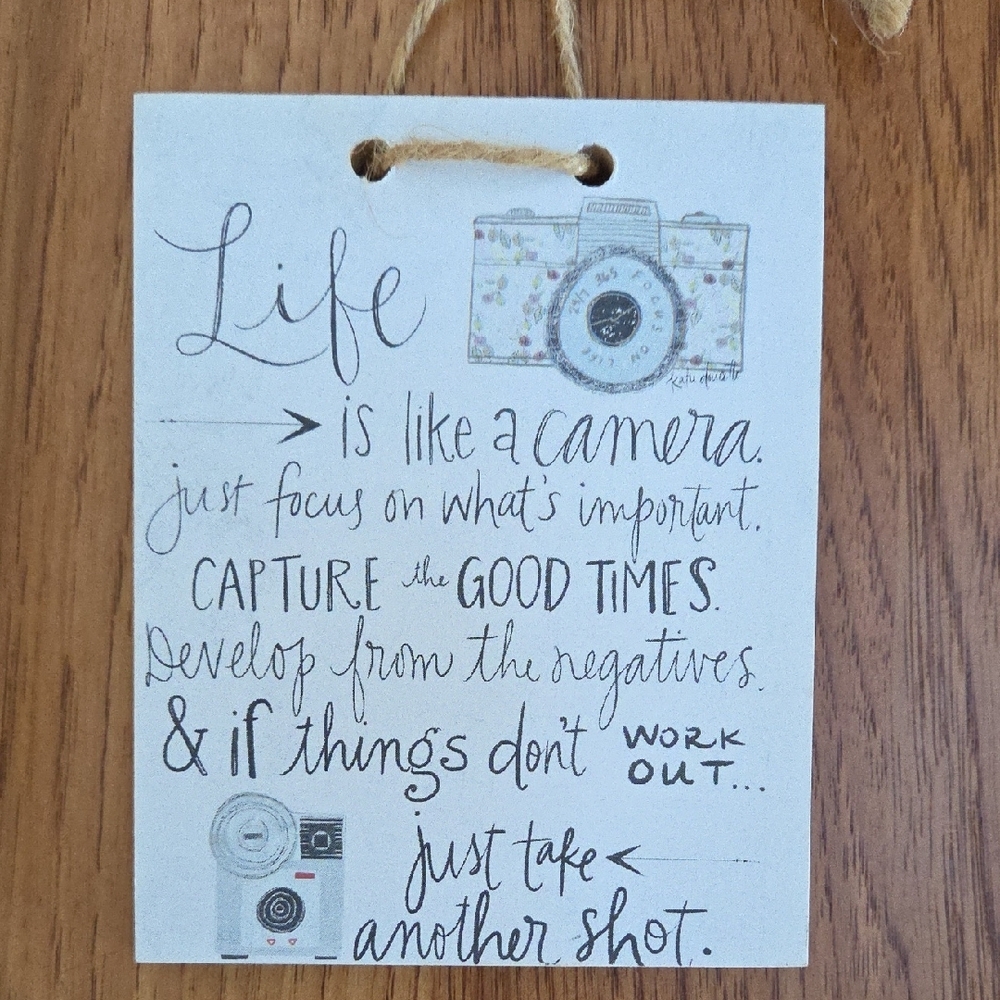 Life
is like a camera.
just focus on what's important.
CAPTURE the GOOD TIMES.
Develop from the negatives.
& if things don't WORK
OUT...
just take
another shot.
24/7 365 FOCUS ON LIFE